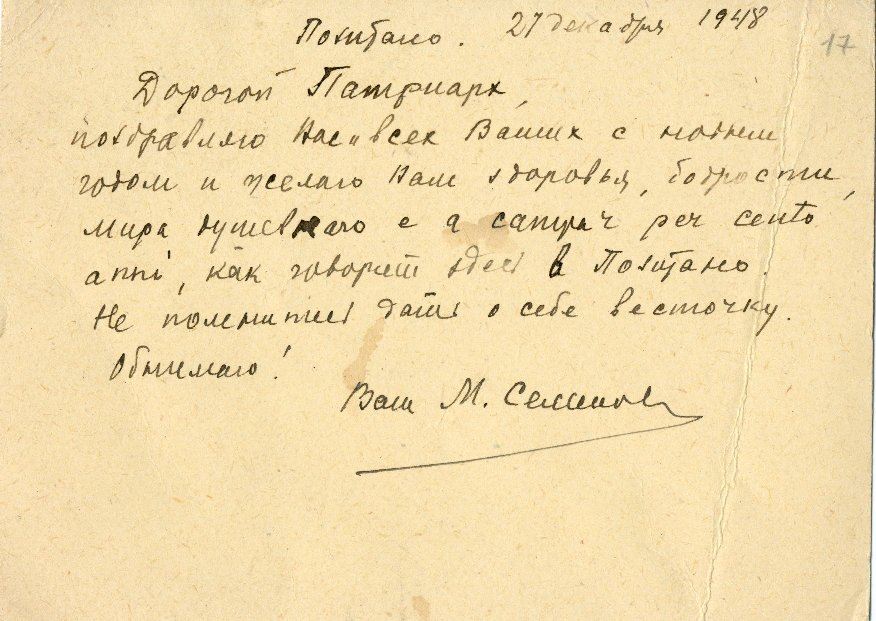 Позитано. 27 декабря 1948
17
Дорогой Патриарх,
поздравляю Вас и всех Ваших с новым
годом и желаю Вам здоровья, бодрости,
мира душевнаго e a campar per cento
anni, как говорят здесь в Позитано.
Не поленитесь дать о себе весточку.
Обнимаю!
Ваш М. Семенов